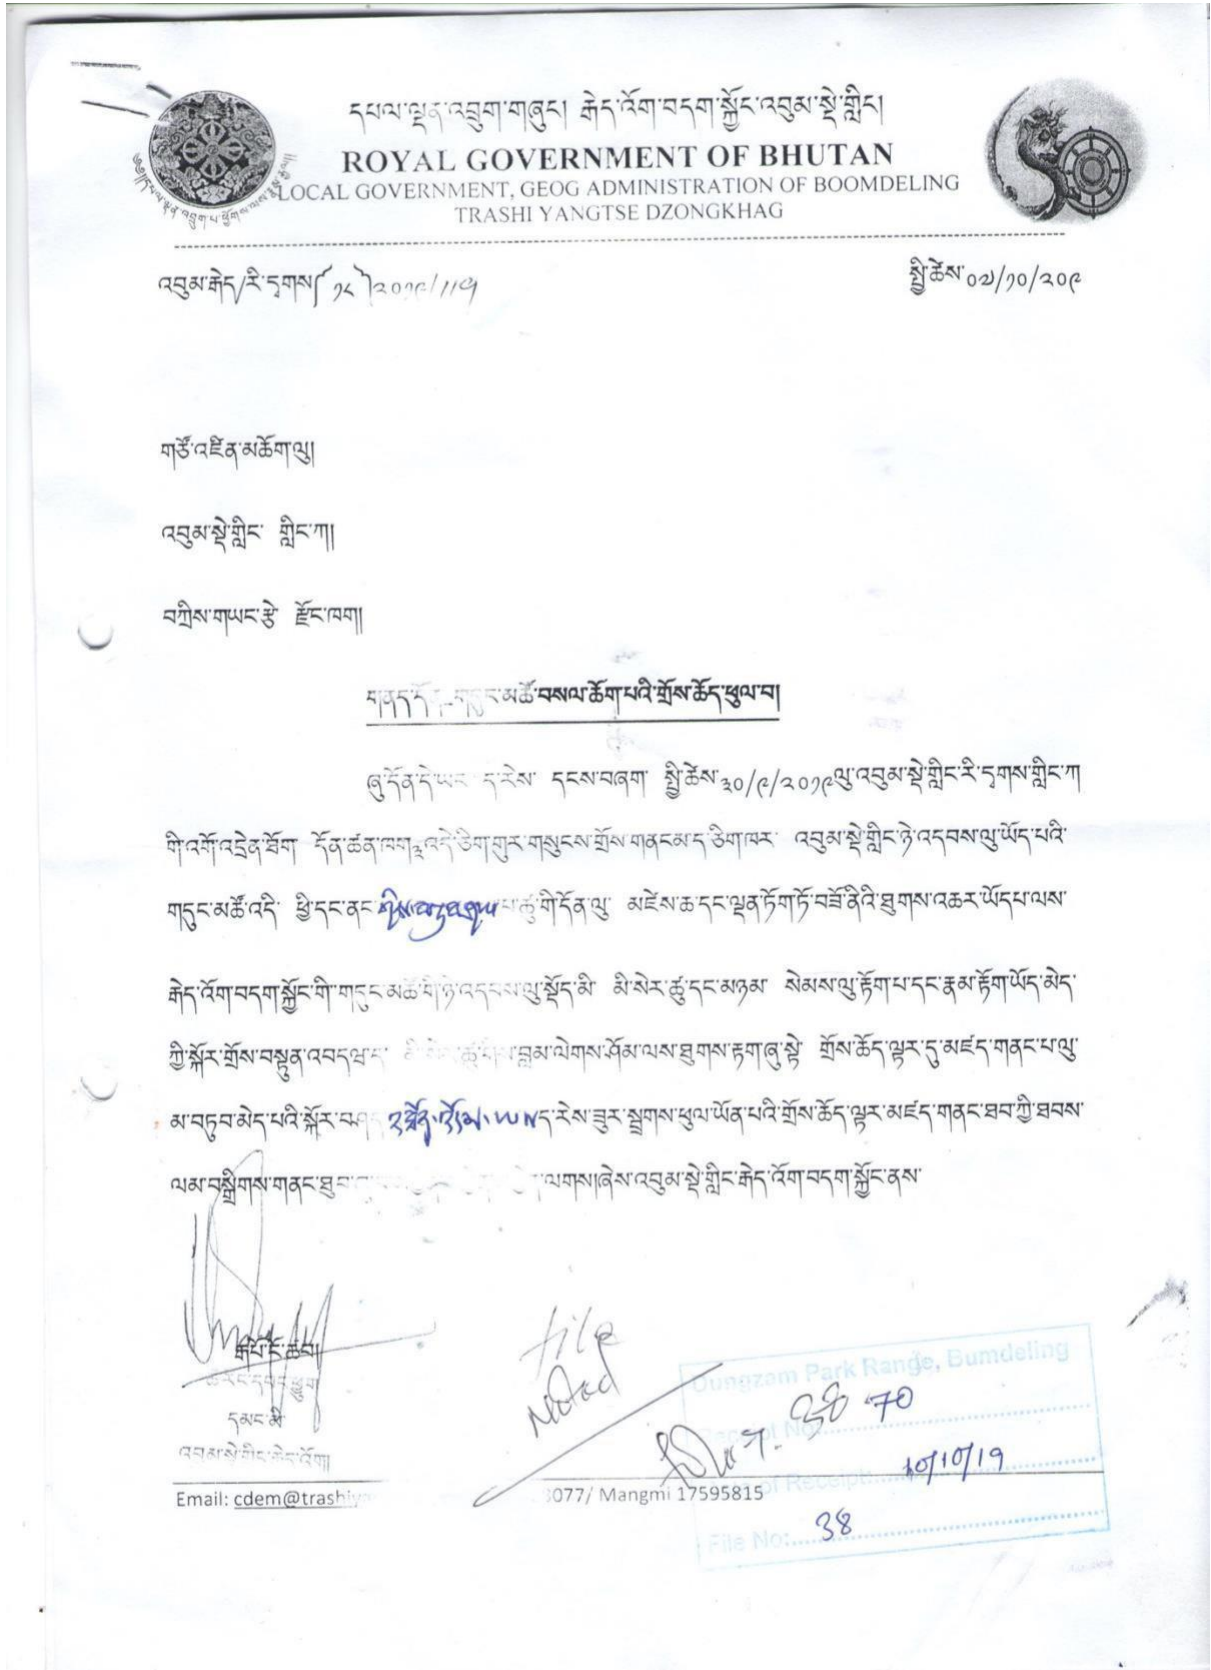 དཔལ་ལྡན་འབྲུག་གཞུང། རྒེད་འོག་བདག་སྐྱོང་འབུམ་སྡེ་གླིང།
ROYAL GOVERNMENT OF BHUTAN
LOCAL GOVERNMENT, GEOG ADMINISTRATION OF BOOMDELING
TRASHI YANGTSE DZONGKHAG
འབུམ་རྒེད/རི་དྭགས་(༡༨)༢༠༡༩/
སྤྱི་ཚེས་༠༧/༡༠/༢༠༩
གཙོ་འཛིན་མཆོག་ལུ།
འབུམ་སྡེ་གླིང་ གླིང་ཀ།
བཀྲིས་གཡང་རྩེ་ རྫོང་ཁག།
གནད་དོན་ གདུང་མཚོ་བསལ་ཆོག་པའི་གྲོས་ཆོད་ཕུལ་བ།
ཞུ་དོན་དེ་ཡང་ ད་རེས་ དངས་བཞག སྤྱི་ཚེས་༣༠/༩/༢༠༡༩ལུ་འབུམ་སྡེ་གླིང་རི་དྭགས་གླིང་ཀ
གི་འགོ་འདྲེན་ཐོག དོན་ཚན་ཁག་༢་འདེ་ཅིག་གུར་གསུངས་གྲོས་གནངམ་ད་ཅིག་ཁར་ འབུམ་སྡེ་གླིང་ཉེ་འདབས་ལུ་ཡོད་པའི་
གདུང་མཚོ་འདི་ ཕྱི་དང་ནང་ པ་ཚུ་གི་དོན་ལུ་ མཛེས་ཆ་དང་ལྡན་ཏོག་ཏོ་བཟོ་ནིའི་ཐུགས་འཆར་ཡོདཔ་ལས་
རྒེད་འོག་བདག་སྐྱོང་གི་གདུང་མཚོ་གི་ཉེ་འདབས་ལུ་སྡོད་མི་ མི་སེར་ཚུ་དང་མཉམ་ སེམས་ལུ་རྟོག་པ་དང་རྣམ་རྟོག་ཡོད་མེད་
ཀྱི་སྐོར་གྲོས་བསྟུན་འབདཝ་ད་ མི་སེར་ཚུ་གིས་བློམ་ལེགས་ཤོམ་ལས་ཐུགས་རྟག་ཞུ་སྟེ་ གྲོས་ཆོད་ལྟར་དུ་མཛད་གནང་པ་ལུ་
མ་བཏུབ་མེད་པའི་སྐོར་ ད་རེས་ཟུར་སྦྲགས་ཕུལ་ཡོན་པའི་གྲོས་ཆོད་ལྟར་མཛད་གནང་ཐབ་ཀྱི་ཐབས་
ལམ་བསྒྲིགས་གནང་ཐུབ་ ལགས།ཞེས་འབུམ་སྡེ་གླིང་རྒེད་འོག་བདག་སྐྱོང་ནས་
དམང་མི་
འབུམ་སྡེ་གླིང་རྒེད་འོག།
File
Noted
Dungzam Park Range, Bumdeling
Receipt No: 70
Date of Receipt: 10/10/19
File No: 38
Email: cdem@trashiya 3077/ Mangmi 17595815